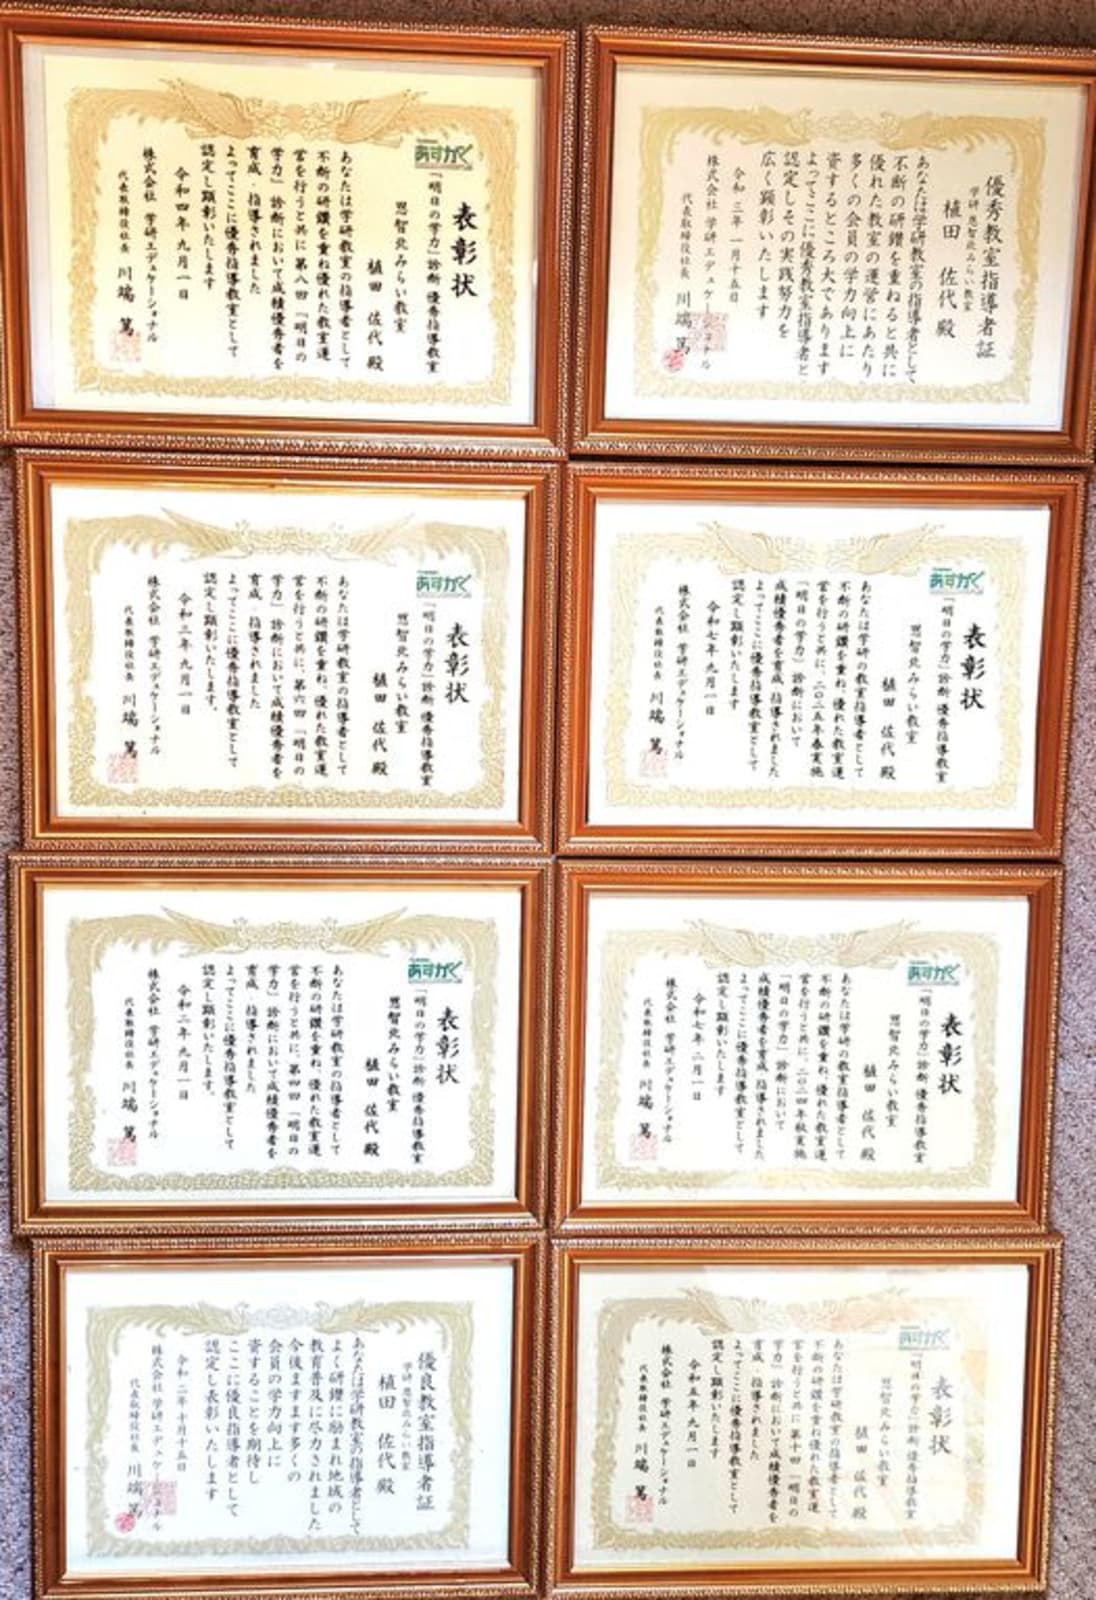 あすかく
表彰状
「明日の学力」診断 優秀指導教室
恩智北みらい教室
植田 佐代 殿
あなたは学研教室の指導者として
不断の研鑽を重ね優れた教室運
営を行うと共に第八回「明日の
学力」診断において成績優秀者を
育成・指導されました
よってここに優秀指導教室として
認定し顕彰いたします
令和四年九月一日
株式会社 学研エデュケーショナル
代表取締役社長 川端 篤
優秀教室指導者証
学研 恩智北みらい教室
植田 佐代 殿
あなたは学研教室の指導者として
不断の研鑽を重ねると共に
優れた教室の運営にあたり
多くの会員の学力向上に
資するところ大であります
よってここに優秀教室指導者と
認定しその実践努力を
広く顕彰いたします
令和三年一月十五日
株式会社 学研エデュケーショナル
代表取締役社長 川端 篤
あすかく
表彰状
「明日の学力」診断 優秀指導教室
恩智北みらい教室
植田 佐代 殿
あなたは学研教室の指導者として
不断の研鑽を重ね、優れた教室運
営を行うと共に、第六回「明日の
学力」診断において成績優秀者を
育成・指導されました
よってここに優秀指導教室として
認定し顕彰いたします。
令和三年九月一日
株式会社 学研エデュケーショナル
代表取締役社長 川端 篤
あすかく
表彰状
「明日の学力」診断 優秀指導教室
恩智北みらい教室
植田 佐代 殿
あなたは学研の教室指導者として
不断の研鑽を重ね、優れた教室運
営を行うと共に、二〇二五年春実施
「明日の学力」診断において
成績優秀者を育成・指導されました
よってここに優秀指導教室として
認定し顕彰いたします
令和七年九月一日
株式会社 学研エデュケーショナル
代表取締役社長 川端 篤
あすかく
表彰状
「明日の学力」診断 優秀指導教室
恩智北みらい教室
植田 佐代 殿
あなたは学研教室の指導者として
不断の研鑽を重ね、優れた教室運
営を行うと共に、第四回「明日の
学力」診断において成績優秀者を
育成・指導されました
よってここに優秀指導教室として
認定し顕彰いたします。
令和二年九月一日
株式会社 学研エデュケーショナル
代表取締役社長 川端 篤
あすかく
表彰状
「明日の学力」診断 優秀指導教室
恩智北みらい教室
植田 佐代 殿
あなたは学研の教室指導者として
不断の研鑽を重ね、優れた教室運
営を行うと共に、二〇二四年秋実施
「明日の学力」診断において
成績優秀者を育成・指導されました
よってここに優秀指導教室として
認定し顕彰いたします
令和七年二月一日
株式会社 学研エデュケーショナル
代表取締役社長 川端 篤
優良教室指導者証
学研 恩智北みらい教室
植田 佐代 殿
あなたは学研教室の指導者として
よく研鑽に励まれ地域の
教育普及に尽力されました
今後ますます多くの
会員の学力向上に
資することを期待し
ここに優良指導者として
認定し表彰いたします
令和二年十月十五日
株式会社 学研エデュケーショナル
代表取締役社長 川端 篤
あすかく
表彰状
「明日の学力」診断 優秀指導教室
恩智北みらい教室
植田 佐代 殿
あなたは学研教室の指導者として
不断の研鑽を重ね優れた教室運
営を行うと共に第十回「明日の
学力」診断において成績優秀者を
育成・指導されました
よってここに優秀指導教室として
認定し顕彰いたします
令和五年九月一日
株式会社 学研エデュケーショナル
代表取締役社長 川端 篤